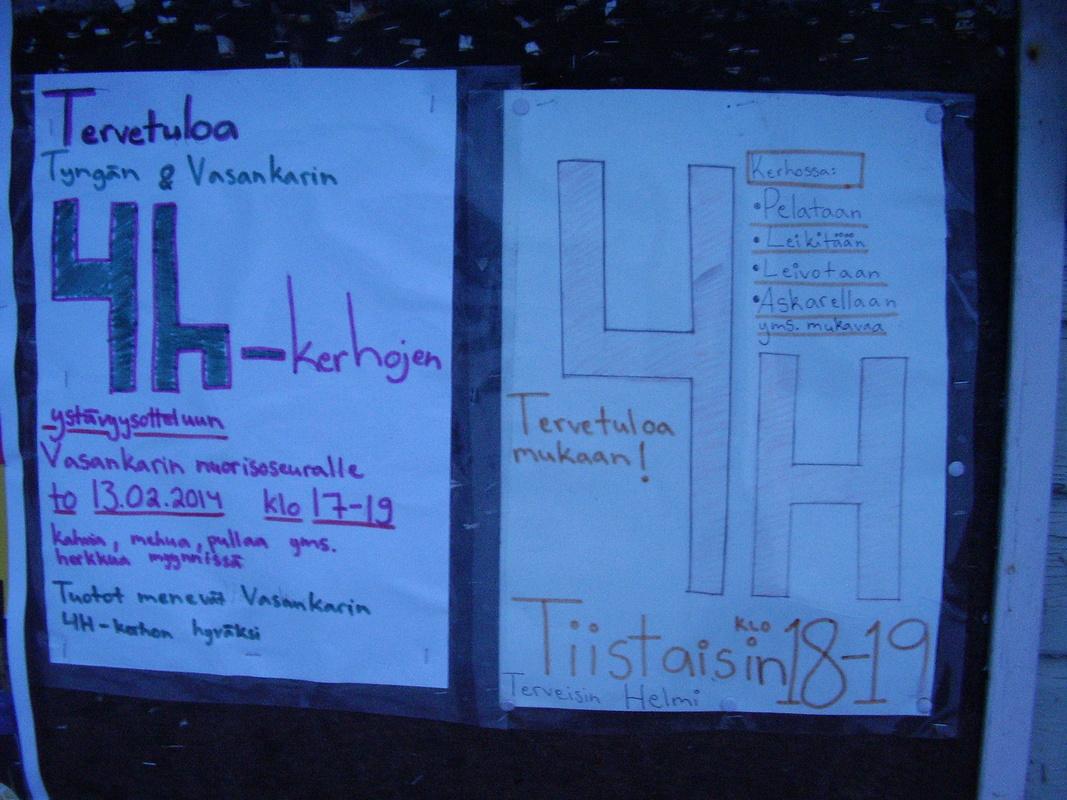 Tervetuloa
Tyngän & Vasankarin
4h-kerhojen
ystävyysotteluun
Vasankarin nuorisoseuralle
to 13.02.2014 klo 17-19
kahvia, mehua, pullaa yms.
herkkua myynnissä
Tuotot menevät Vasankarin
4H-kerhon hyväksi
4H
Kerhossa:
•Pelataan
•Leikitään
•Leivotaan
•Askarellaan
yms. mukavaa
Tervetuloa
mukaan!
Tiistaisin KLO 18-19
Terveisin Helmi